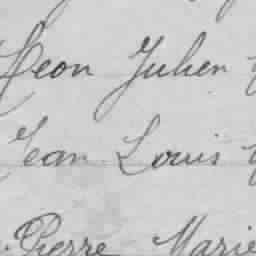 Leon Julien
Jean Louis
Pierre Marie